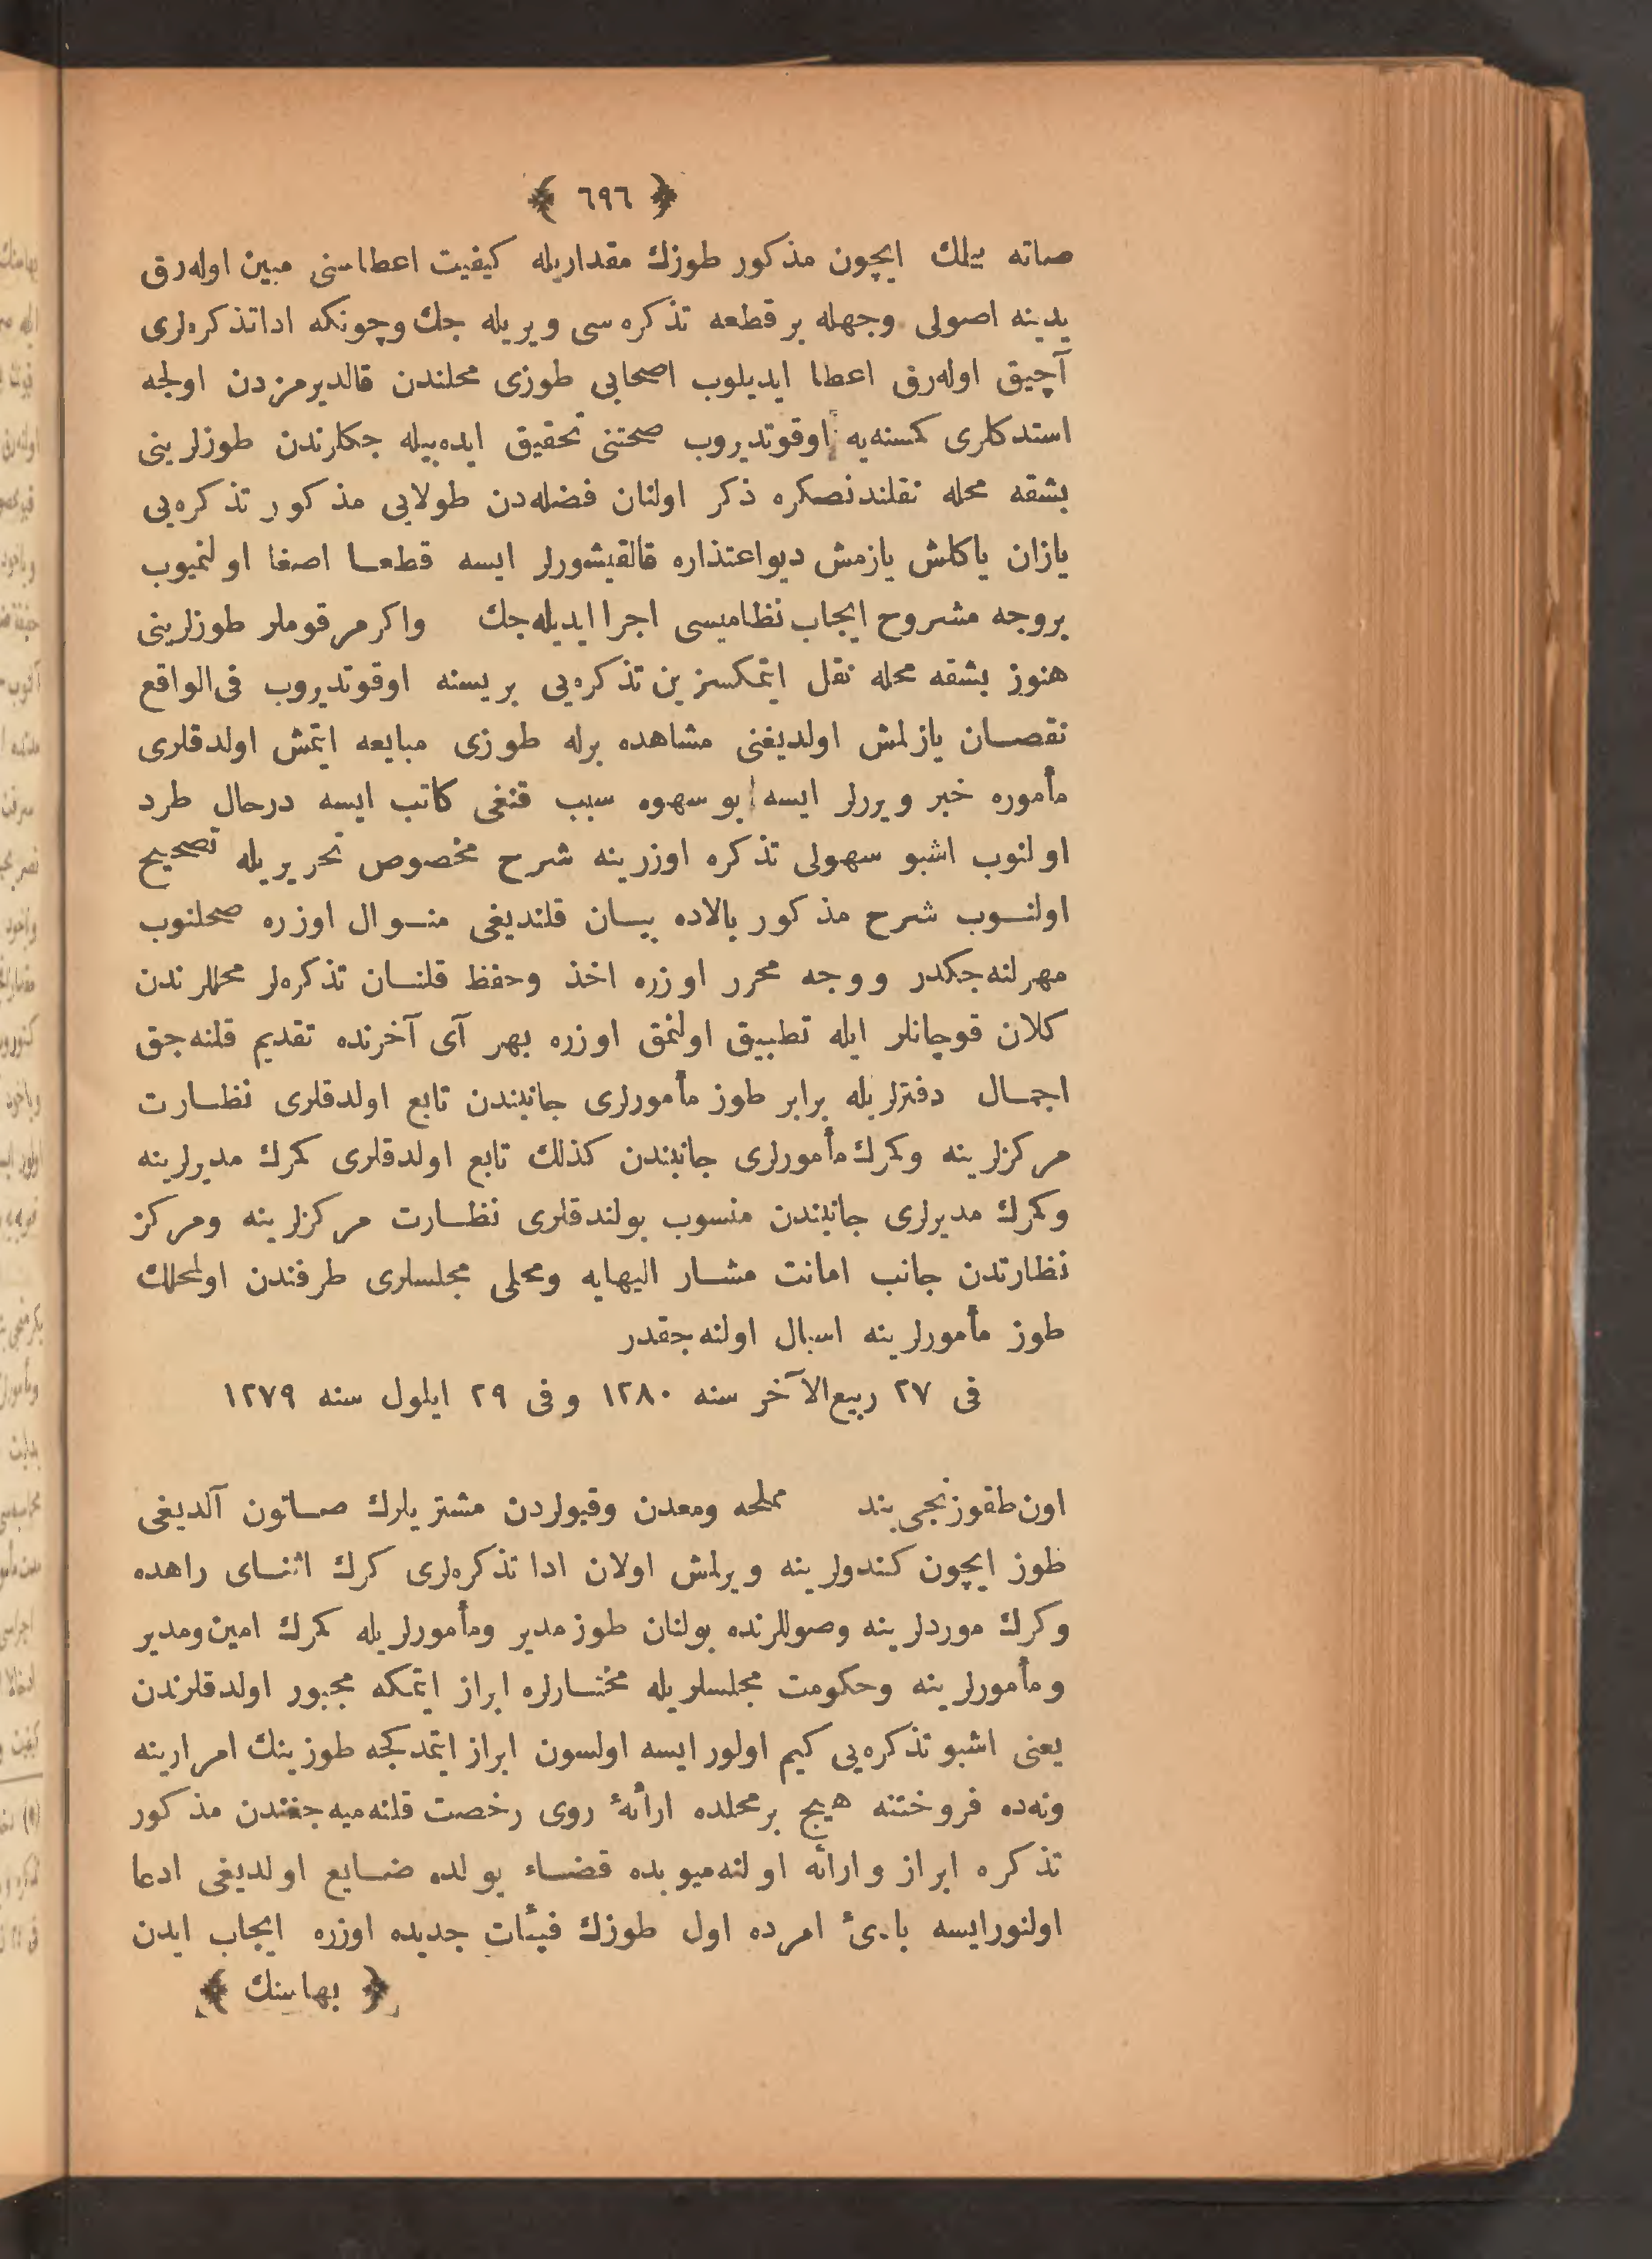 ﴿ ٦٩٦ ﴾
صاته بيلمك ايچون مذكور طوزك مقداريله كيفيت اعطاسنى مبين اوله‌رق
يدينه اصولى وجهله بر قطعه تذكره‌سى ويريله جك وچونكه اداتذكره‌لرى
آچيق اوله‌رق اعطا ايديلوب اصحابى طوزى محلندن قالديرمزدن اولجه
استدكلرى كمسنه‌يه اوقوتديروب صحتنى تحقيق ايده‌بيله جكلرندن طوزلرينى
بشقه محله نقلندنصكره ذكر اولنان فضله‌دن طولايى مذكور تذكره‌يى
يازان ياكلش يازمش ديو اعتذاره قالقيشورلر ايسه قطعا اصغا اولنميوب
بروجه مشروح ايجاب نظاميسى اجرا ايديله‌جك واكر مرقوملر طوزلرينى
هنوز بشقه محله نقل ايتمكسزين تذكره‌يى بريسنه اوقوتديروب فى‌الواقع
نقصان يازلمش اولديغنى مشاهده برله طوزى مبايعه ايتمش اولدقلرى
مأموره خبر ويررلر ايسه بو سهوه سبب قنغى كاتب ايسه درحال طرد
اولنوب اشبو سهولى تذكره اوزرينه شرح مخصوص تحريريله تصحيح
اولنوب شرح مذكور بالاده بيان قلنديغى منوال اوزره صحلنوب
مهرلنه‌جكدر ووجه محرر اوزره اخذ وحفظ قلنان تذكره‌لر محللرندن
كلان قوچانلر ايله تطبيق اولنمق اوزره بهر آى آخرنده تقديم قلنه‌جق
اجمال دفترلريله برابر طوز مأمورلرى جانبندن تابع اولدقلرى نظارت
مركزلرينه وكمرك مأمورلرى جانبندن كذلك تابع اولدقلرى كمرك مديرلرينه
وكمرك مديرلرى جانبندن منسوب بولندقلرى نظارت مركزلرينه ومركز
نظارتدن جانب امانت مشار اليهايه ومحلى مجلسلرى طرفندن اولمحلك
طوز مأمورلرينه اسبال اولنه‌جقدر
فى ٢٧ ربيع‌الآخر سنه ١٢٨٠ وفى ٢٩ ايلول سنه ١٢٧٩
اون‌طقوزنجى بند مملحه ومعدن وقپولردن مشتريلرك صاتون آلديغى
طوز ايچون كندولرينه ويرلمش اولان ادا تذكره‌لرى كرك اثناى راهده
وكرك موردلرينه وصوللرنده بولنان طوز مدير ومأمورلريله كمرك امين ومدير
ومأمورلرينه وحكومت مجلسلريله مختارلره ابراز ايتمكه مجبور اولدقلرندن
يعنى اشبو تذكره‌يى كيم اولور ايسه اولسون ابراز ايتمدكجه طوزينك امرارينه
ونه‌ده فروختنه هيچ بر محلده ارائهٔ روى رخصت قلنه‌ميه‌جغندن مذكور
تذكره ابراز وارائه اولنه‌ميوبده قضاء يولده ضايع اولديغى ادعا
اولنورايسه بادئ امرده اول طوزك فيئات جديده اوزره ايجاب ايدن
﴿ بهاسنك ﴾